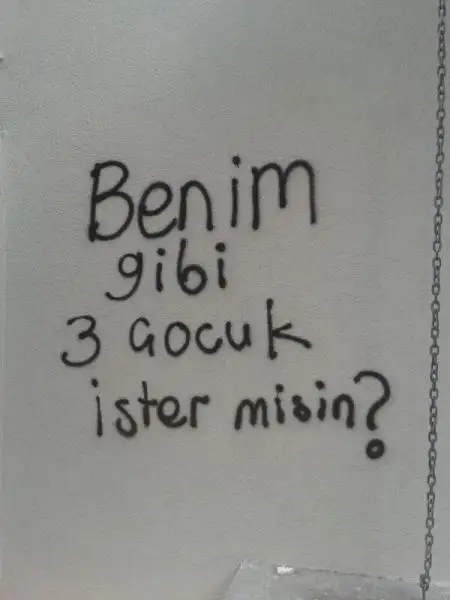 Benim
gibi
3 çocuk
ister misin?